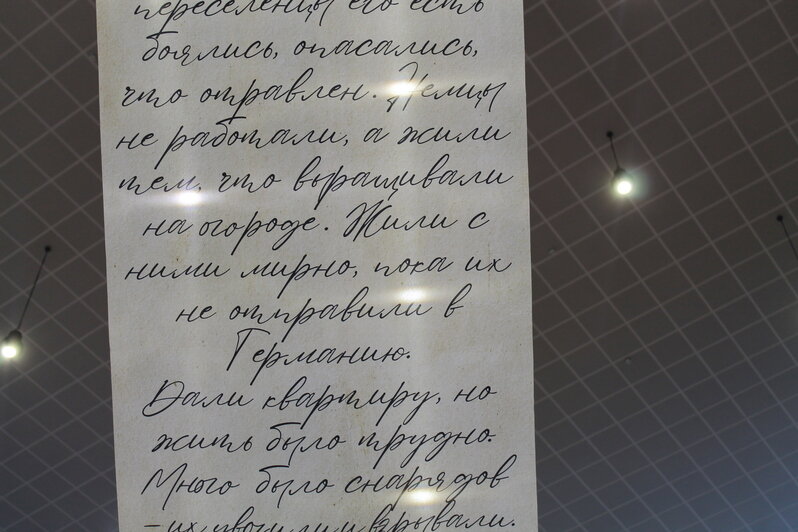 переселенцы его есть
боялись, опасались,
что отравлен. Немцы
не работали, а жили
тем, что выращивали
на огороде. Жили с
ними мирно, пока их
не отправили в
Германию.
Дали квартиру, но
жить было трудно.
Много было снарядов
- их увозили и взрывали.